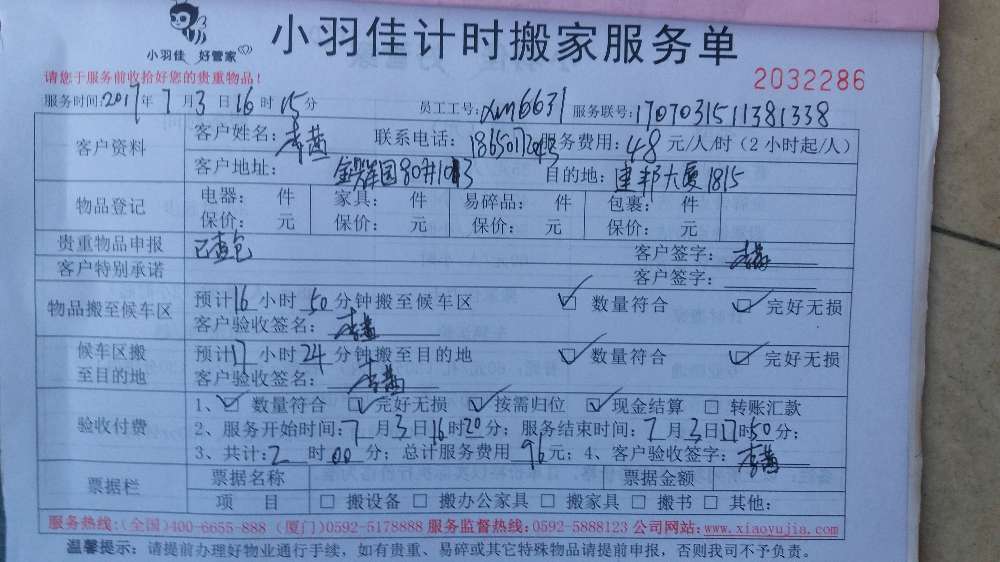 小羽佳 好管家
小羽佳计时搬家服务单
请您于服务前收拾好您的贵重物品！
2032286
服务时间：2017年7月3日16时15分 员工工号：xm6631 服务联号：1707031511381338
客户资料 客户姓名：李茜 联系电话： 服务费用：48元/人/时（2小时起/人）
客户地址： 目的地：建邦大厦1815
物品登记 电器： 件 家具： 件 易碎品： 件 包裹： 件
保价： 元 保价： 元 保价： 元 保价： 元
贵重物品申报 已查包 客户签字：李茜
客户特别承诺 客户签字：
物品搬至候车区 预计16小时50分钟搬至候车区 ☑ 数量符合 ☑ 完好无损
客户验收签名：李茜
候车区搬至目的地 预计17小时24分钟搬至目的地 ☑ 数量符合 ☑ 完好无损
客户验收签名：李茜
验收付费 1、☑ 数量符合 ☑ 完好无损 ☑ 按需归位 ☑ 现金结算 □ 转账汇款
2、服务开始时间：7月3日16时20分；服务结束时间：7月3日17时50分；
3、共计：2时00分；总计服务费用96元；4、客户验收签字：李茜
票据栏 票据名称 票据金额
项 目 □ 搬设备 □ 搬办公家具 □ 搬家具 □ 搬书 □ 其他：
服务热线：（全国）400-6655-888 （厦门）0592-5178888 服务监督热线：0592-5888123 公司网站：www.xiaoyujia.com
温馨提示：请提前办理好物业通行手续，如有贵重、易碎或其它特殊物品请提前申报，否则我司不予负责。